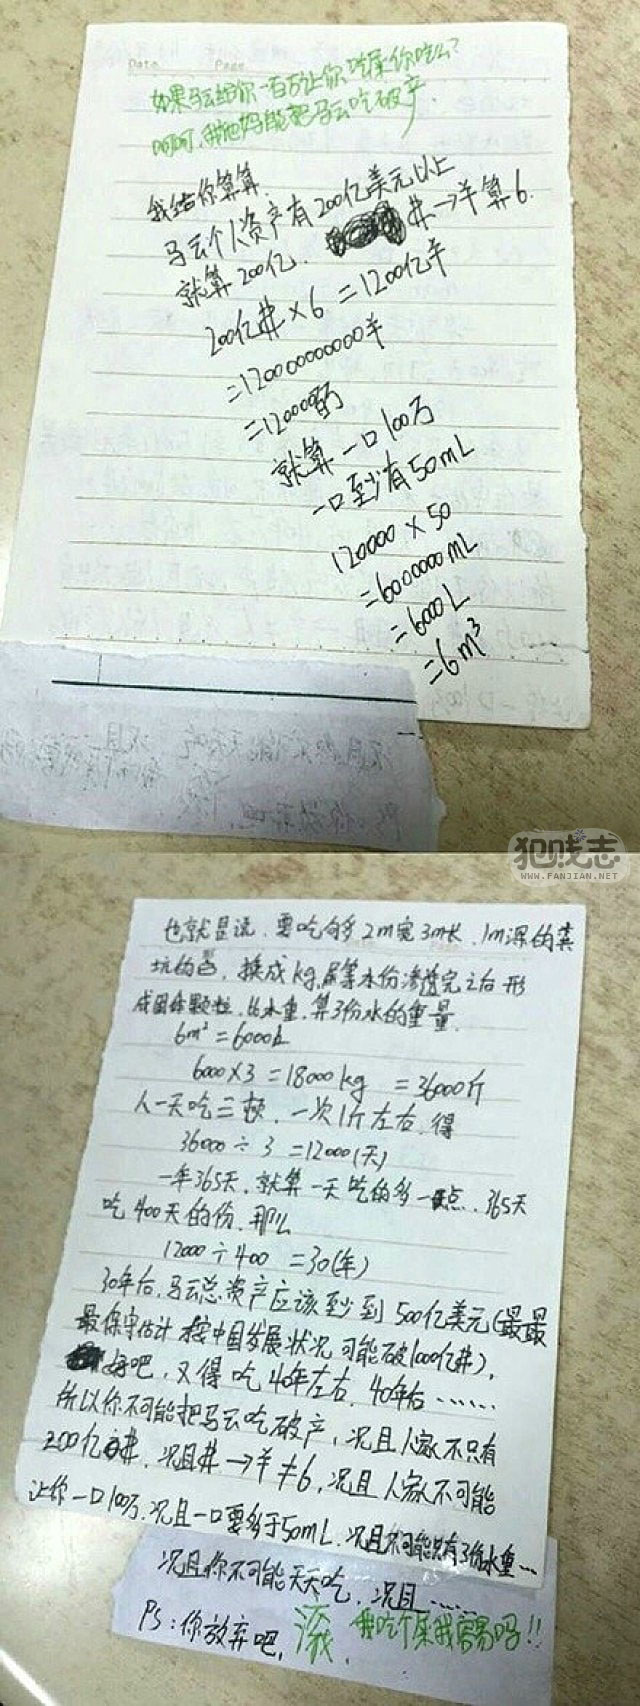 Date Page
如果马云给你一百万让你吃屎你吃么?
呵呵,我他妈能把马云吃破产.
我给你算算.
马云个人资产有200亿美元以上
就算200亿. 美→¥算6.
200亿美×6=1200亿¥
=120000000000¥
=120000百万
就算一口100万
一口至少有50mL
120000×50
=6000000mL
=6000L
=6m³
犯贱志
WWW.FANJIAN.NET
也就是说,要吃够多2m宽3m长,1m深的粪
坑的,换成kg,屎等水份渗透完之后形
成固体颗粒,比水重,算3份水的重量.
6m³=6000L
6000×3=18000kg =36000斤
人一天吃三顿,一次1斤左右,得
36000÷3=12000(天)
一年365天,就算一天吃的多一点,365天
吃400天的份,那么
12000÷400=30(年)
30年后,马云总资产应该至少到500亿美元(最最
最保守估计按中国发展状况可能破1000亿美),
好吧,又得吃40年左右,40年后……
所以你不可能把马云吃破产,况且人家不只有
200亿美,况且美→¥≠6,况且人家不可能
让你一口100万,况且一口要多于50mL,况且不可能只有3份水重…
况且你不可能天天吃,况且……
PS:你放弃吧, 滚, 我吃个屎我容易吗!!